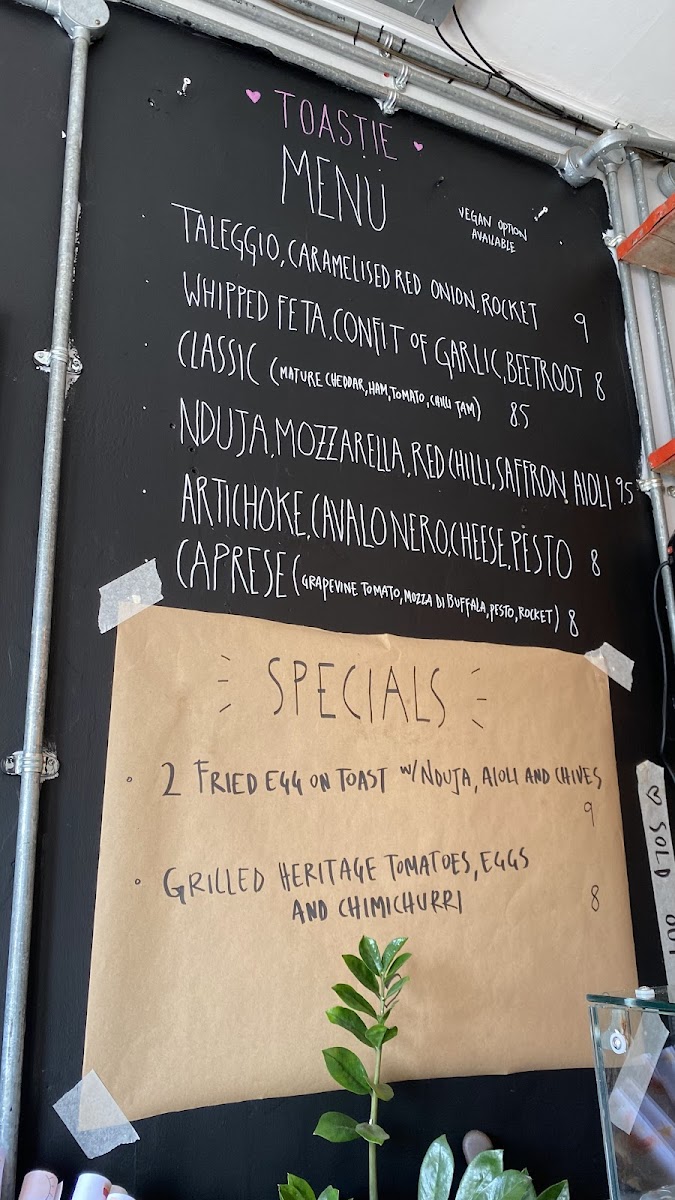 TOASTIE
MENU
VEGAN OPTION
AVAILABLE
TALEGGIO, CARAMELISED RED ONION, ROCKET 9
WHIPPED FETA, CONFIT OF GARLIC, BEETROOT 8
CLASSIC (MATURE CHEDDAR, HAM, TOMATO, CHILLI JAM) 8.5
NDUJA, MOZZARELLA, RED CHILLI, SAFFRON AIOLI 9.5
ARTICHOKE, CAVALO NERO, CHEESE, PESTO 8
CAPRESE (GRAPEVINE TOMATO, MOZZA DI BUFFALA, PESTO, ROCKET) 8
SPECIALS
2 FRIED EGG ON TOAST W/ NDUJA, AIOLI AND CHIVES
9
GRILLED HERITAGE TOMATOES, EGGS
AND CHIMICHURRI 8
SOLD OUT